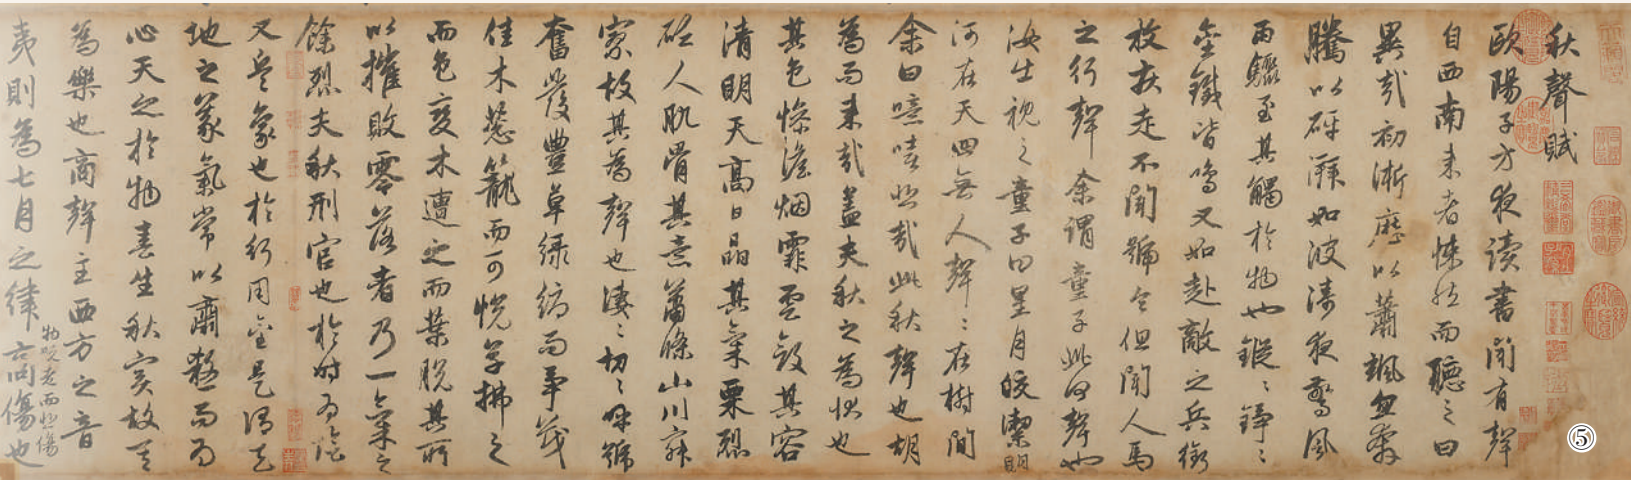 秋聲賦
歐陽子方夜读書聞有聲
自西南来者悚然而聽之曰
異哉初淅瀝以蕭颯忽奔
騰以砰湃如波濤夜驚風
雨驟至其觸於物也鏦〻錚〻
金鐵皆鳴又如赴敵之兵銜
枚疾走不聞號令但聞人馬
之行聲余謂童子此何聲也
汝出視之童子曰星月皎潔明
河在天四無人聲〻在樹間
余曰噫嘻悲哉此秋聲也胡
為而来哉蓋夫秋之為状也
其色惨澹烟霏雲斂其容
清明天高日晶其氣栗烈
砭人肌骨其意蕭條山川寂
寥故其為聲也淒〻切〻呼號
奮發豐草緑縟而爭茂
佳木葱籠而可悦草拂之
而色變木遭之而葉脱其所
以摧敗零落者乃一氣之
餘烈夫秋刑官也於時為陰
又兵象也於行用金是謂天
地之義氣常以肅殺而為
心天之於物春生秋實故其
為樂也商聲主西方之音
夷則為七月之律商傷也
物既老而悲傷
⑤